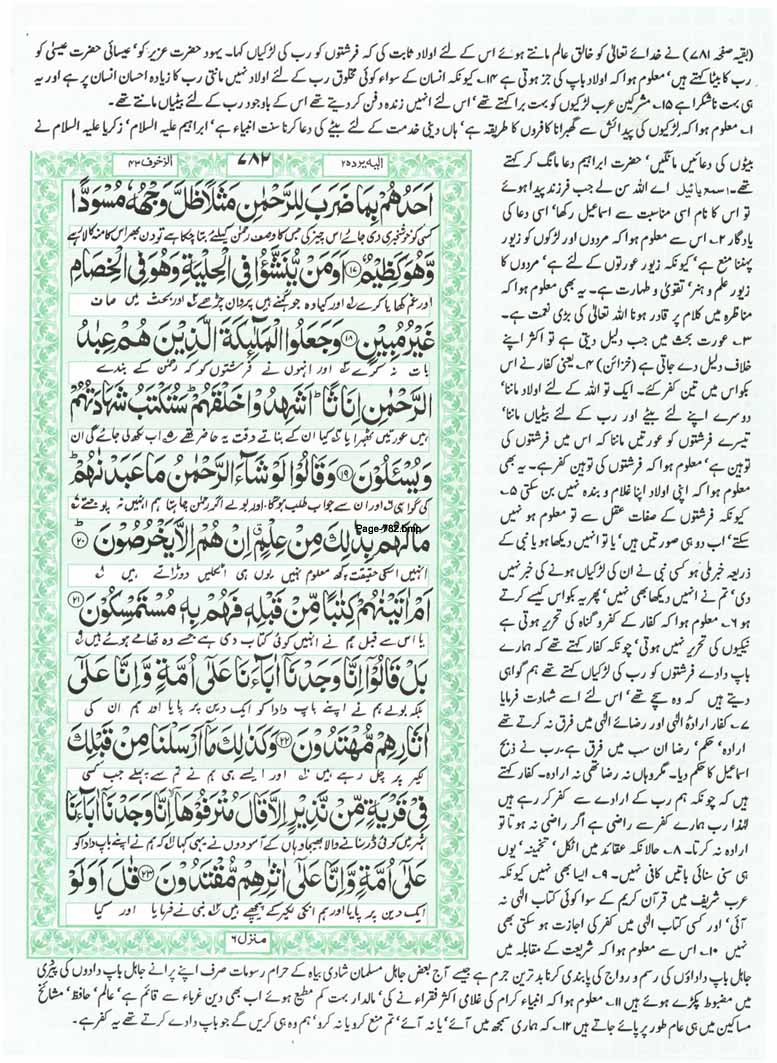 (بقیہ صفحہ ۷۸۱) نے خدائے تعالیٰ کو خالق عالم مانتے ہوئے اس کے لئے اولاد ثابت کی کہ فرشتوں کو رب کی لڑکیاں کہا۔ یہود حضرت عزیر کو' عیسائی حضرت عیسیٰ کو
رب کا بیٹا کہتے ہیں' معلوم ہوا کہ اولاد باپ کی جز ہوتی ہے ۱۴۔ کیونکہ انسان کے سواء کوئی مخلوق رب کے لئے اولاد نہیں مانتی رب کا زیادہ احسان انسان پر ہے اور یہ
ہی بہت ناشکرا ہے ۱۵۔ مشرکین عرب لڑکیوں کو بہت برا کہتے تھے' اس لئے انہیں زندہ دفن کر دیتے تھے اس کے باوجود رب کے لئے بیٹیاں مانتے تھے۔
۱۔ معلوم ہوا کہ لڑکیوں کی پیدائش سے گھبرانا کافروں کا طریقہ ہے' ہاں دینی خدمت کے لئے بیٹے کی دعا کرنا سنت انبیاء ہے' ابراہیم علیہ السلام' زکریا علیہ السلام نے
بیٹوں کی دعائیں مانگیں' حضرت ابراہیم دعا مانگ کر کہتے
تھے۔ اسمع یا ئیل اے اللہ سن لے جب فرزند پیدا ہوئے
تو اس کا نام اسی مناسبت سے اسماعیل رکھا' اسی دعا کی
یادگار ۲۔ اس سے معلوم ہوا کہ مردوں اور لڑکوں کو زیور
پہننا منع ہے' کیونکہ زیور عورتوں کے لئے ہے' مردوں کا
زیور علم و ہنر' تقویٰ و طہارت ہے۔ یہ بھی معلوم ہوا کہ
مناظرہ میں کلام پر قادر ہونا اللہ تعالٰی کی بڑی نعمت ہے۔
۳۔ عورت بحث میں جب دلیل دیتی ہے تو اکثر اپنے
خلاف دلیل دے جاتی ہے (خزائن) ۴۔ یعنی کفار نے اس
بکواس میں تین کفر کئے۔ ایک تو اللہ کے لئے اولاد ماننا'
دوسرے اپنے لئے بیٹے اور رب کے لئے بیٹیاں ماننا'
تیسرے فرشتوں کو عورتیں ماننا کہ اس میں فرشتوں کی
توہین ہے' معلوم ہوا کہ فرشتوں کی توہین کفر ہے۔ یہ بھی
معلوم ہوا کہ اپنی اولاد اپنا غلام و بندہ نہیں بن سکتی ۵۔
کیونکہ فرشتوں کے صفات عقل سے تو معلوم نہیں ہو
سکتے' اب دو ہی صورتیں ہیں' یا تو انہیں دیکھا ہو یا نبی کے
ذریعہ خبر ملی ہو کسی نبی نے ان کی لڑکیاں ہونے کی خبر نہیں
دی' تم نے انہیں دیکھا بھی نہیں' پھر یہ بکواس کیسے کرتے
ہو ۶۔ معلوم ہوا کہ کفار کے کفر و گناہ کی تحریر ہوتی ہے
نیکیوں کی تحریر نہیں ہوتی' چونکہ کفار کہتے تھے کہ ہمارے
باپ دادے فرشتوں کو رب کی لڑکیاں کہتے تھے ہم گواہی
دیتے ہیں کہ وہ سچے تھے' اس لئے اسے شہادت فرمایا
۷۔ کفار ارادۂ الٰہی اور رضائے الٰہی میں فرق نہ کرتے تھے
ارادہ' حکم' رضا ان سب میں فرق ہے۔ رب نے ذبح
اسماعیل کا حکم دیا۔ مگر وہاں نہ رضا تھی نہ ارادہ۔ کفار کہتے
ہیں کہ چونکہ ہم رب کے ارادے سے کفر کر رہے ہیں
لہٰذا رب ہمارے کفر سے راضی ہے اگر راضی نہ ہوتا تو
ارادہ نہ کرتا۔ ۸۔ حالانکہ عقائد میں اٹکل' تخمینہ' یوں
ہی سنی سنائی باتیں کافی نہیں۔ ۹۔ ایسا بھی نہیں کیونکہ
عرب شریف میں قرآن کریم کے سوا کوئی کتاب الٰہی نہ
آئی' اور کسی کتاب الٰہی میں کفر کی اجازت ہو سکتی بھی
نہیں ۱۰۔ اس سے معلوم ہوا کہ شریعت کے مقابلہ میں
الیہ یرد ۲۵
۷۸۲
الزخرف ۴۳
اَحَدُهُمْ بِمَا ضَرَبَ لِلرَّحْمٰنِ مَثَلًا ظَلَّ وَجْهُهٗ مُسْوَدًّا
کسی کو خوشخبری دی جائے اس چیز کی جس کا وصف رحمٰن کیلئے بتا چکا ہے تو دن بھر اس کا منہ کالا رہے
وَّهُوَ كَظِیْمٌ ۝۱۷ اَوَمَنْ یُّنَشَّؤُا فِی الْحِلْیَةِ وَهُوَ فِی الْخِصَامِ
اور غم کھا یا کرے اور کیا وہ جو گہنے میں پروان چڑھے اور بحث میں صاف
غَیْرُ مُبِیْنٍ ۝۱۸ وَجَعَلُوا الْمَلٰٓىِٕكَةَ الَّذِیْنَ هُمْ عِبٰدُ
بات نہ کرے اور انہوں نے فرشتوں کو کہ رحمٰن کے بندے
الرَّحْمٰنِ اِنَاثًا ؕ اَشَهِدُوْا خَلْقَهُمْ ؕ سَتُكْتَبُ شَهَادَتُهُمْ
ہیں عورتیں ٹھہرایا کیا ان کے بناتے وقت یہ حاضر تھے اب لکھ لی جائے گی ان
وَیُسْـَٔلُوْنَ ۝۱۹ وَقَالُوْا لَوْ شَآءَ الرَّحْمٰنُ مَا عَبَدْنٰهُمْ ؕ
کی گواہی اور ان سے جواب طلب ہوگا اور بولے اگر رحمٰن چاہتا ہم انہیں نہ پوجتے
Page-782.bmp
مَا لَهُمْ بِذٰلِكَ مِنْ عِلْمٍ ۗ اِنْ هُمْ اِلَّا یَخْرُصُوْنَ ۝۲۰
انہیں اسکی حقیقت کچھ معلوم نہیں یوں ہی اٹکلیں دوڑاتے ہیں
اَمْ اٰتَیْنٰهُمْ كِتٰبًا مِّنْ قَبْلِهٖ فَهُمْ بِهٖ مُسْتَمْسِكُوْنَ ۝۲۱
یا اس سے قبل ہم نے انہیں کوئی کتاب دی ہے جسے وہ تھامے ہوئے ہیں
بَلْ قَالُوْۤا اِنَّا وَجَدْنَاۤ اٰبَآءَنَا عَلٰۤی اُمَّةٍ وَّاِنَّا عَلٰۤی
بلکہ بولے ہم نے اپنے باپ دادا کو ایک دین پر پایا اور ہم ان کی
اٰثٰرِهِمْ مُّهْتَدُوْنَ ۝۲۲ وَكَذٰلِكَ مَاۤ اَرْسَلْنَا مِنْ قَبْلِكَ
لکیر پر چل رہے ہیں اور ایسے ہی ہم نے تم سے پہلے جب کسی
فِیْ قَرْیَةٍ مِّنْ نَّذِیْرٍ اِلَّا قَالَ مُتْرَفُوْهَاۤ ۙ اِنَّا وَجَدْنَاۤ اٰبَآءَنَا
شہر میں کوئی ڈر سنانے والا بھیجا وہاں کے آسودوں نے یہی کہا کہ ہم نے اپنے باپ دادا کو
عَلٰۤی اُمَّةٍ وَّاِنَّا عَلٰۤی اٰثٰرِهِمْ مُّقْتَدُوْنَ ۝۲۳ قٰلَ اَوَلَوْ
ایک دین پر پایا اور ہم انکی لکیر کے پیچھے ہیں نبی نے فرمایا اور کیا
منزل ۶
جاہل باپ داداؤں کی رسم و رواج کی پابندی کرنا بدترین جرم ہے جیسے آج بعض جاہل مسلمان شادی بیاہ کے حرام رسومات صرف اپنے پرانے جاہل باپ دادوں کی پیروی
میں مضبوط پکڑے ہوئے ہیں ۱۱۔ معلوم ہوا کہ انبیاء کرام کی غلامی اکثر فقراء نے کی' مالدار بہت کم مطیع ہوئے اب بھی دین غرباء سے قائم ہے' عالم' حافظ' مشائخ
مساکین میں ہی عام طور پر پائے جاتے ہیں ۱۲۔ کہ ہماری سمجھ میں آئے' یا نہ آئے' تم منع کرو یا نہ کرو' ہم وہ ہی کریں گے جو باپ دادے کرتے تھے یہ کفر ہے۔